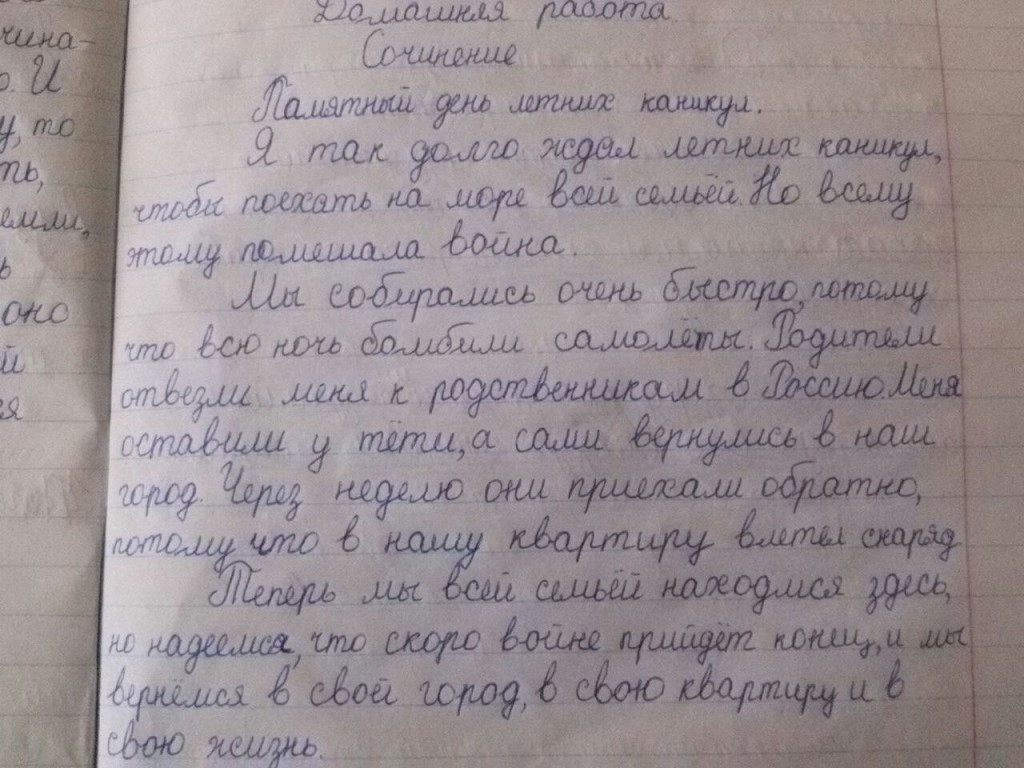 Домашняя работа
Сочинение
Памятный день летних каникул.
Я так долго ждал летних каникул,
чтобы поехать на море всей семьёй. Но всему
этому помешала война.
Мы собирались очень быстро, потому
что всю ночь бомбили самолёты. Родители
отвезли меня к родственникам в Россию. Меня
оставили у тёти, а сами вернулись в наш
город. Через неделю они приехали обратно,
потому что в нашу квартиру влетел снаряд
Теперь мы всей семьёй находимся здесь,
но надеемся, что скоро войне прийдёт конец, и мы
вернёмся в свой город, в свою квартиру и в
свою жизнь.
чина-
о. И
у, то
ть,
емли,
ь
оно
й
ся